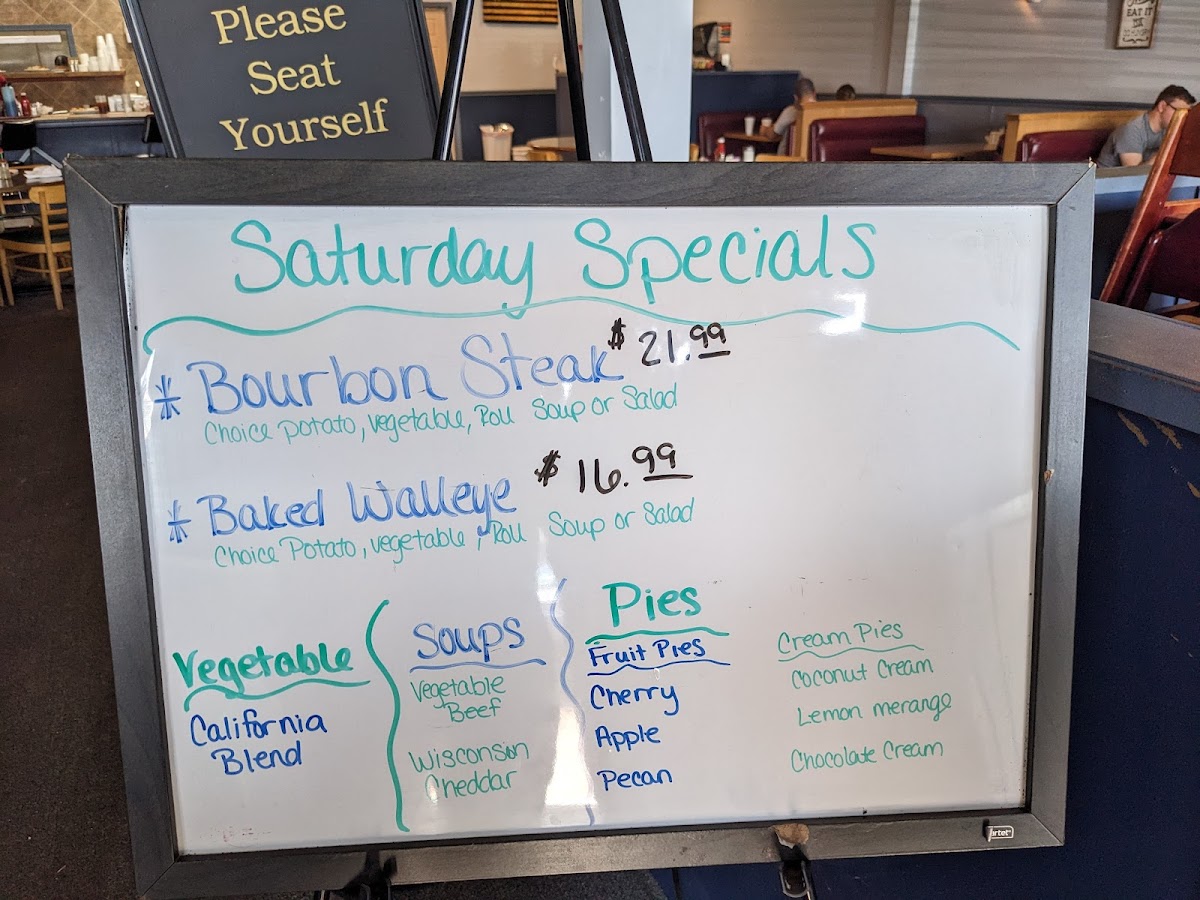 Please
Seat
Yourself
EAT IT
Saturday Specials
* Bourbon Steak $21.99
Choice potato, vegetable, Roll Soup or Salad
* Baked Walleye $16.99
Choice Potato, vegetable, Roll Soup or Salad
Vegetable
California
Blend
Soups
Vegetable
Beef
Wisconson
Cheddar
Pies
Fruit Pies
Cherry
Apple
Pecan
Cream Pies
Coconut Cream
Lemon merange
Chocolate Cream